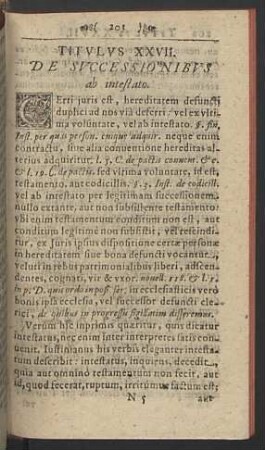 201
TITVLVS XXVII.
DE SVCCESSIONIBVS
ab intestato.
CErti juris est, hereditatem defuncti
duplici ad nos via deferri, vel ex vlti-
ma voluntate, vel ab intestato. §. fin.
Inst. per quas person. cuique adquir. neque enim
contractu, sive alia conventione hereditas al-
terius adquiritur. l. 5. C. de pactis convent. & c.
& l. 19. C. de pactis. sed vltima voluntate, id est,
testamento, aut codicillis. §. 3. Inst. de codicill.
vel ab intestato per legitimam successionem,
nullo extante, aut non subsistente testamento:
vbi enim testamentum conditum non est, aut
conditum legitimè non subsistit, vel rescindi-
tur, ex Juris ipsius dispositione certæ personæ
in hereditatem sive bona defuncti vocantur,
velut in rebus patrimonialibus liberi, adscen-
dentes, cognati, vir & vxor: novell. 118. & l. 1.
in p. D. quis ordo in poss. ser; in ecclesiasticis verò
bonis ipsa ecclesia, vel successor defuncti cle-
rici, de quibus in progressu sigillatim disseremus.
Verùm hîc inprimis quæritur, quis dicatur
intestatus, nec enim inter interpretes satis con-
venit. Iustinianus his verbis eleganter intesta-
tum describit: intestatus, inquiens, decedit,
qui aut omnino testamentum non fecit, aut
id, quod fecerat, ruptum, irritumve factum est;
N 5 aut